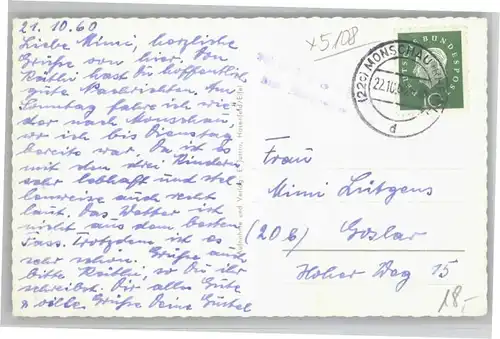 21.10.60
Liebe Mimi, herzliche
Grüße von hier. Von
Käthi hast Du hoffentlich
gute Nachrichten. Am
Sonntag fahre ich wie-
der nach Monschau,
wo ich bis Dienstag
bereits war. Da ist es
mit den drei Kindern
sehr lebhaft und stel-
lenweise auch recht
laut. Das Wetter ist
nicht aus dem besten
Fass. Trotzdem ist es
sehr schön. Grüße auch
bitte Käthi, so Du ihr
schreibst. Dir alles Gute
u. viele Grüße Deine Gustel
x5108
(22c) MONSCHAU
22.10.
d
BUNDESPOST
10
Frau
Mimi Lütgens
(20b) Goslar
Hoher Weg 15
18,-